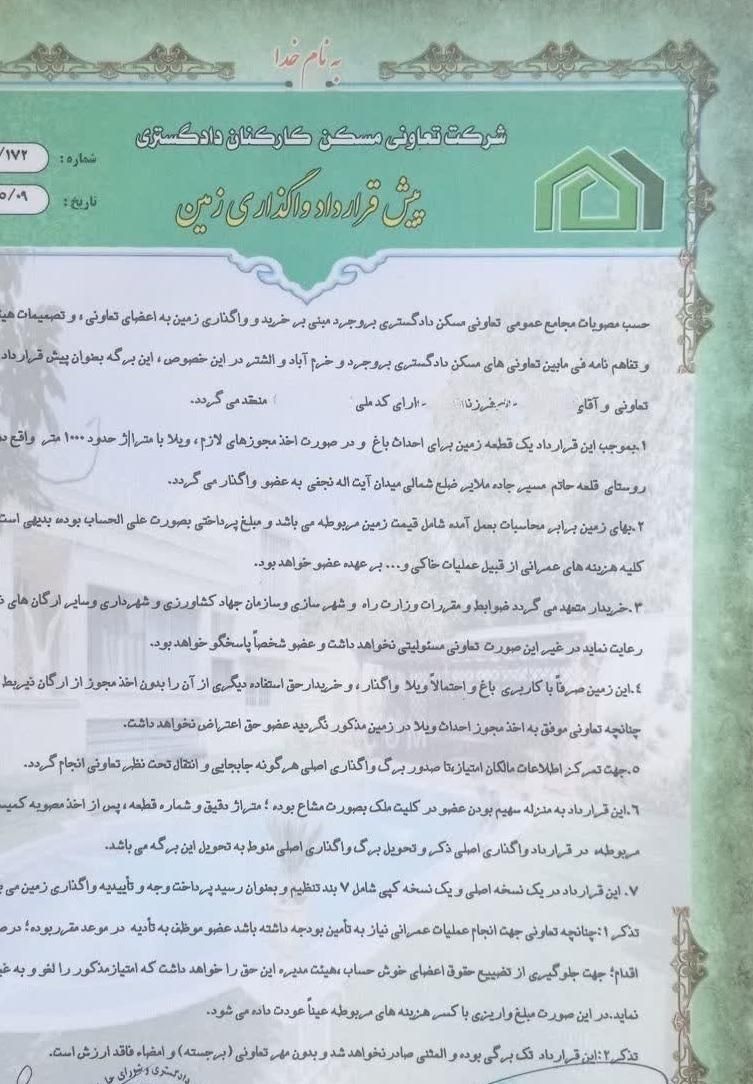 به نام خدا
شرکت تعاونی مسکن کارکنان دادگستری
شماره : /۱۷۲
پیش قرارداد واگذاری زمین
تاریخ : ۵/۰۹
حسب مصوبات مجامع عمومی تعاونی مسکن دادگستری بروجرد مبنی بر خرید و واگذاری زمین به اعضای تعاونی ، و تصمیمات
و تفاهم نامه فی مابین تعاونی های مسکن دادگستری بروجرد و خرم آباد و الشتر در این خصوص ، این برگه بعنوان پیش قرارداد
تعاونی و آقای فرزند دارای کد ملی منعقد می گردد.
۱.بموجب این قرارداد یک قطعه زمین برای احداث باغ و در صورت اخذ مجوزهای لازم ، ویلا با متراژ حدود ۱۰۰۰ متر واقع
روستای قلعه حاتم مسیر جاده ملایر ضلع شمالی میدان آیت اله نجفی به عضو واگذار می گردد.
۲.بهای زمین برابر محاسبات بعمل آمده شامل قیمت زمین مربوطه می باشد و مبلغ پرداختی بصورت علی الحساب بوده، بدیهی است
کلیه هزینه های عمرانی از قبیل عملیات خاکی و... بر عهده عضو خواهد بود.
۳.خریدار متعهد می گردد ضوابط و مقررات وزارت راه و شهر سازی وسازمان جهاد کشاورزی و شهرداری وسایر ارگان های
رعایت نماید در غیر این صورت تعاونی مسئولیتی نخواهد داشت و عضو شخصاً پاسخگو خواهد بود.
٤.این زمین صرفاً با کاربری باغ و احتمالاً ویلا واگذار ، و خریدار حق استفاده دیگری از آن را بدون اخذ مجوز از ارگان ذیربط
چنانچه تعاونی موفق به اخذ مجوز احداث ویلا در زمین مذکور نگردید عضو حق اعتراض نخواهد داشت.
۵.جهت تمرکز اطلاعات مالکان امتیاز،تا صدور برگ واگذاری اصلی هرگونه جابجایی و انتقال تحت نظر تعاونی انجام گردد.
۶.این قرارداد به منزله سهیم بودن عضو در کلیت ملک بصورت مشاع بوده ؛ متراژ دقیق و شماره قطعه ، پس از اخذ مصوبه
مربوطه، در قرارداد واگذاری اصلی ذکر و تحویل برگ واگذاری اصلی منوط به تحویل این برگه می باشد.
۷. این قرارداد در یک نسخه اصلی و یک نسخه کپی شامل ۷ بند تنظیم و بعنوان رسید پرداخت وجه و تأییدیه واگذاری زمین می
تذکر ۱:چنانچه تعاونی جهت انجام عملیات عمرانی نیاز به تأمین بودجه داشته باشد عضو موظف به تأدیه در موعد مقرر بوده؛
اقدام؛ جهت جلوگیری از تضییع حقوق اعضای خوش حساب ،هیئت مدیره این حق را خواهد داشت که امتیاز مذکور را لغو و به
نماید.در این صورت مبلغ واریزی با کسر هزینه های مربوطه عیناً عودت داده می شود.
تذکر ۲:این قرارداد تک برگی بوده و المثنی صادر نخواهد شد و بدون مهر تعاونی (برجسته) و امضاء فاقد ارزش است.